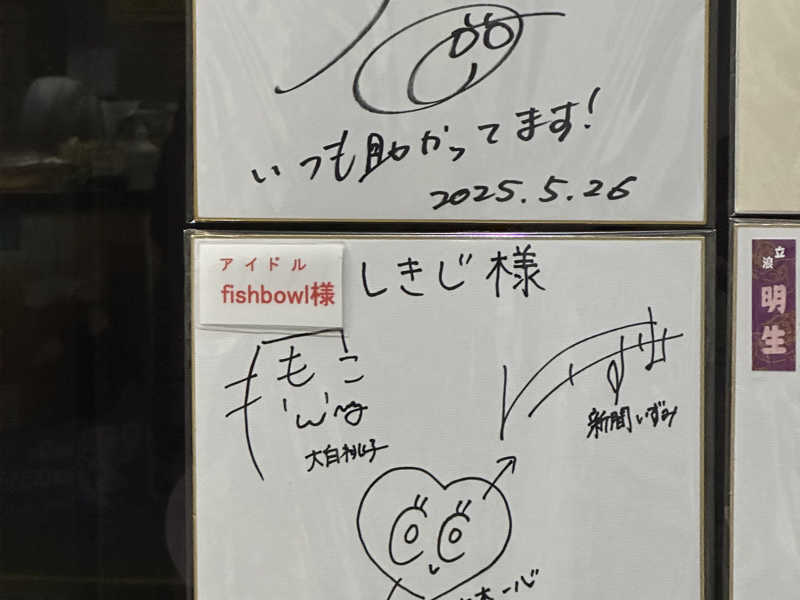 いつも助かってます!
2025.5.26
アイドル
fishbowl様
しきじ様
もこ
大白桃子
新間いずみ
立浪
明生